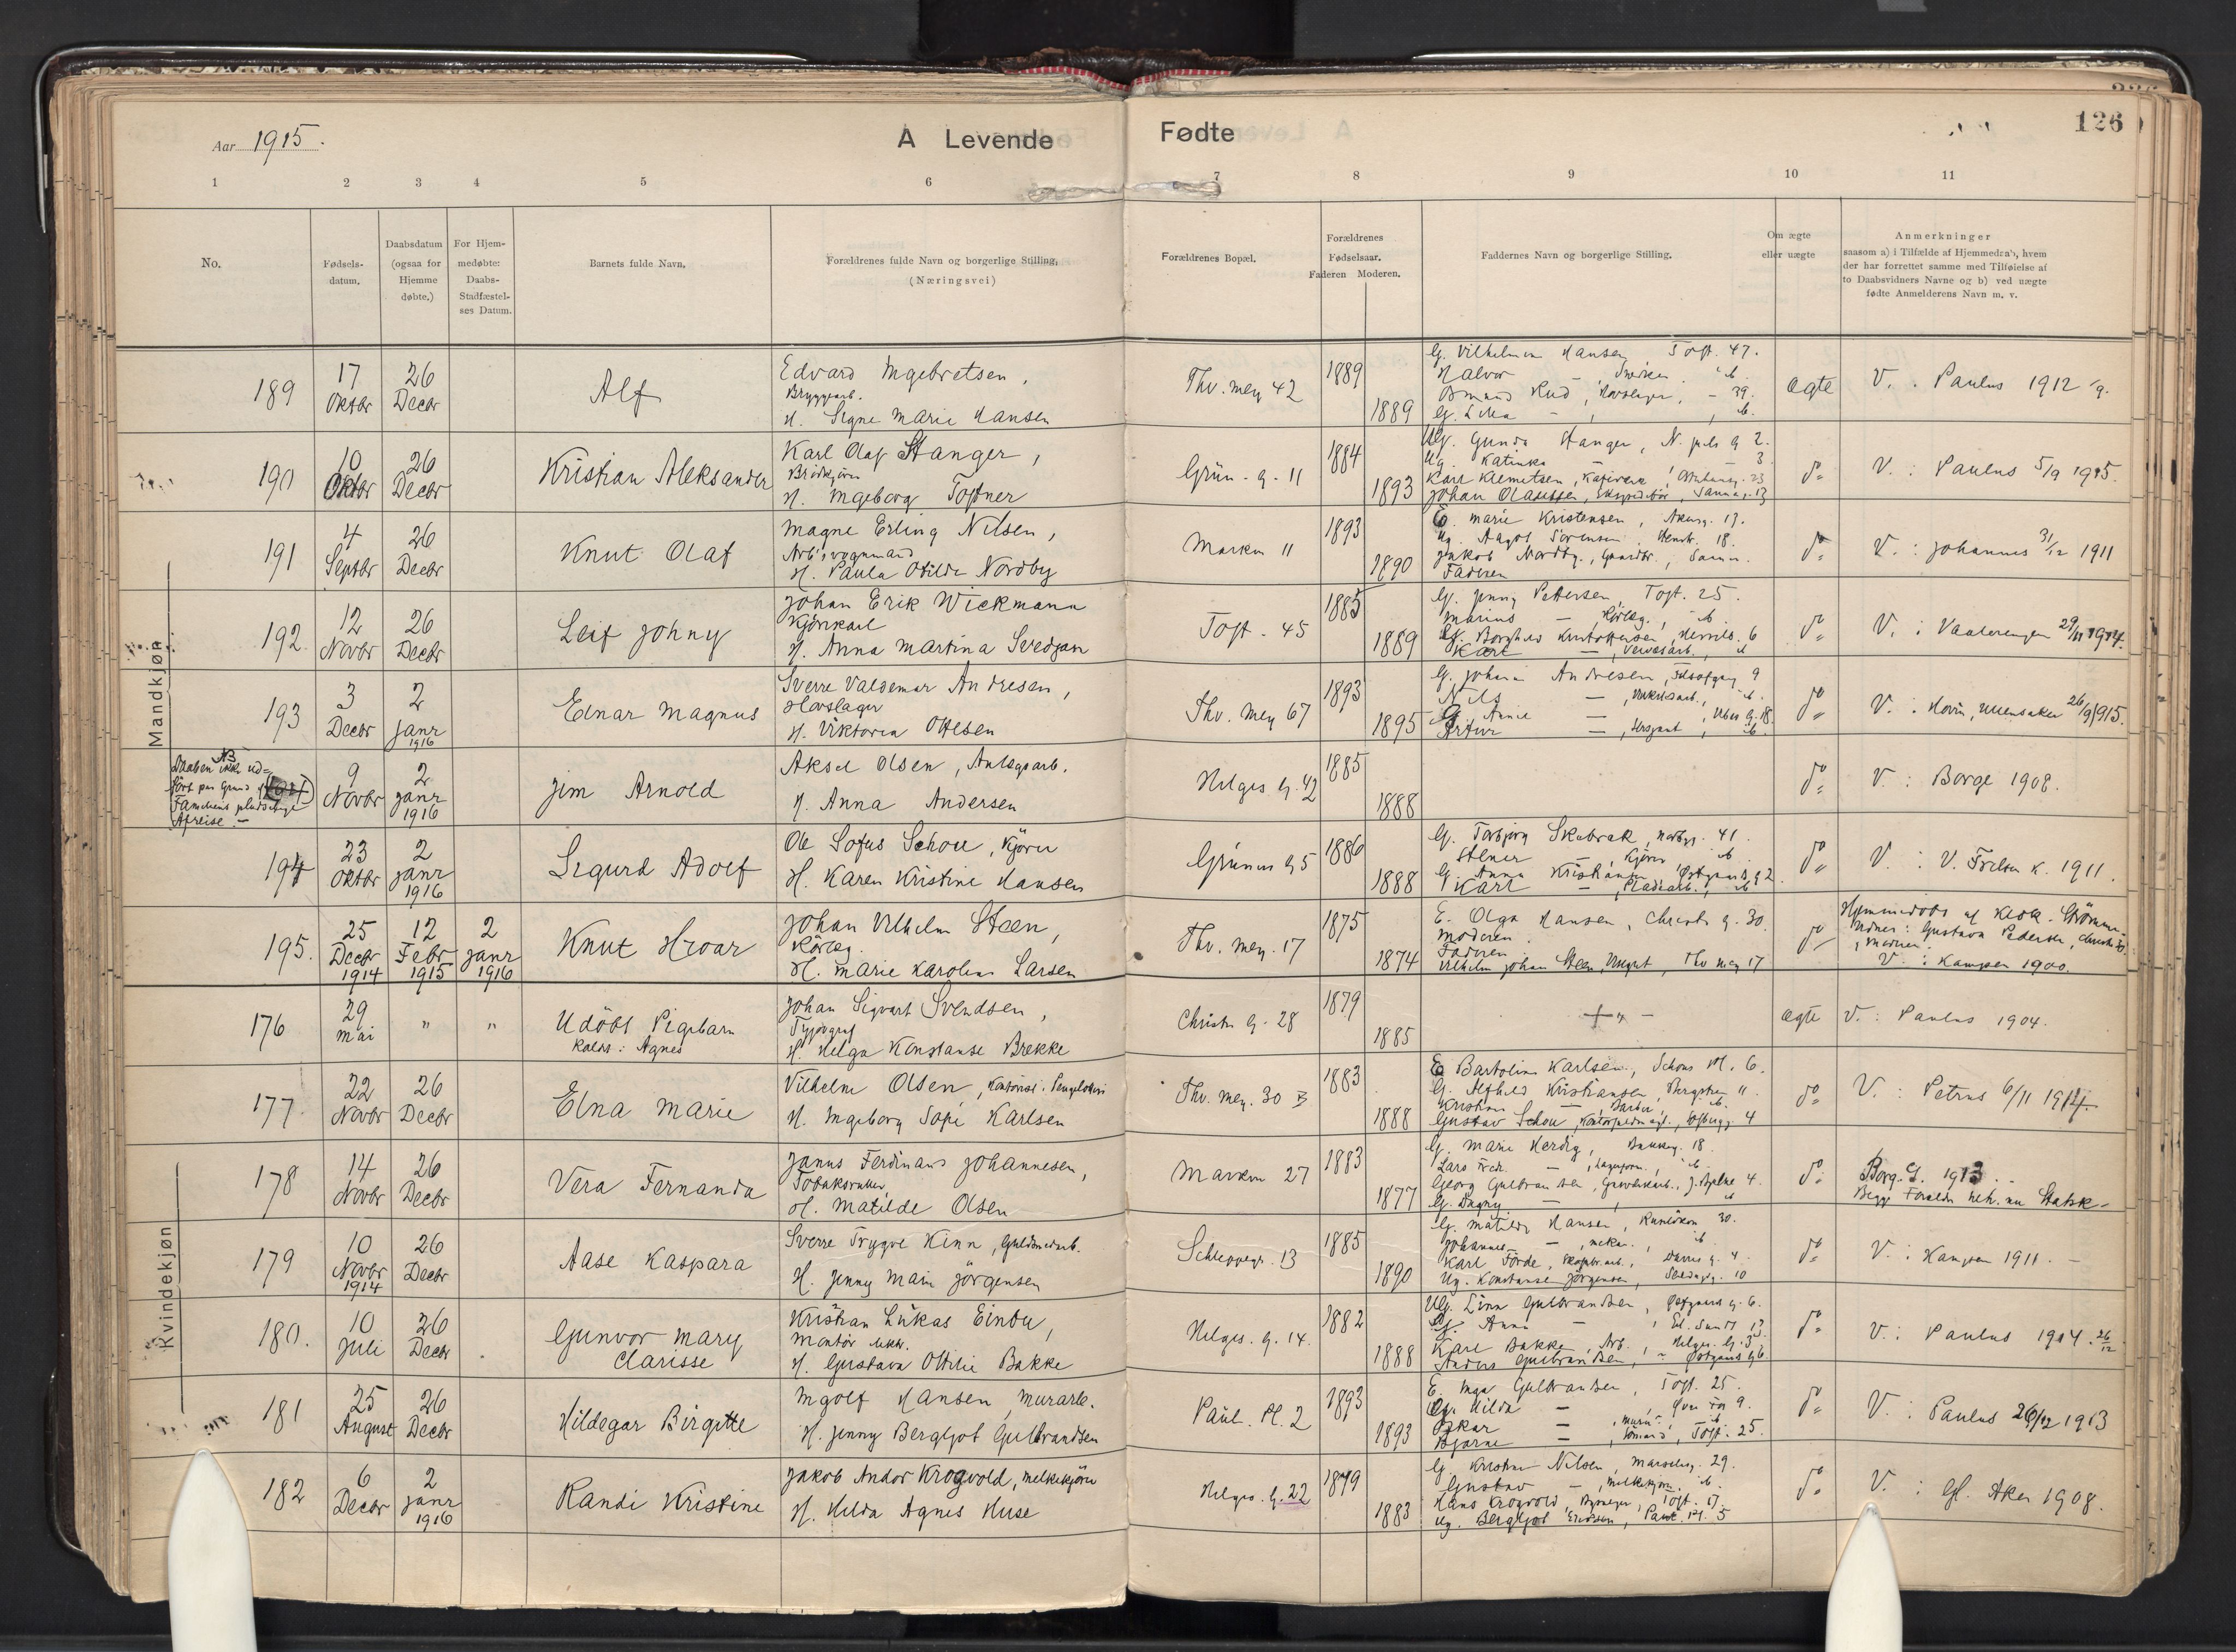 126
Aar 1915.
A Levende Fødte
1 2 3 4 5 6 7 8 9 10 11
No.
Fødsels-
datum.
Daabsdatum
(ogsaa for
Hjemme
døbte.)
For Hjem-
medøbte:
Daabs-
Stadfæstel-
ses Datum.
Barnets fulde Navn.
Forældrenes fulde Navn og borgerlige Stilling.
(Næringsvei)
Forældrenes Bopæl.
Forældrenes
Fødselsaar.
Faderen Moderen.
Faddernes Navn og borgerlige Stilling.
Om ægte
eller uægte
Anmerkninger
saasom a) i Tilfælde af Hjemmedaab, hvem
der har forrettet samme med Tilføielse af
to Daabsvidners Navne og b) ved uægte
fødte Anmelderens Navn m. v.
Mandkjøn
189
17 Oktbr
26 Decbr
Alf
Edvard Ingebretsen,
Bryggearb.
H. Signe Marie Hansen
Thv. mey 42
1889
1889
G. Vilhelmine Hansen, Toft. 47.
Halvor
ægte
V. : Paulus 1912
190
10 Oktbr
26 Decbr
Kristian Aleksander
Karl Olaf Stanger,
H. Ingeborg Toftner
Grün. g. 11
1884
1893
Ug. Gunda Stanger, N. g 2.
Ug. Katinka — 3
Karl Klemetsen,
Johan Olaussen, Ekspeditør, Sannerg. 13
do
V. : Paulus 5/9 1915.
191
4 Septbr
26 Decbr
Knut Olaf
Magne Erling Nilsen,
Arb., vognmand
H. Paula Otilde Nordby
Markv 11
1893
1890
E. Marie Kristensen, Akersg. 17.
Ug. Aagot Sørensen, 18.
Jakob Nordby, Gaardbr.,
Faderen
do
V. : Johannes 31/12 1911
192.
12 Novbr
26 Decbr
Leif Johny
Johan Erik Wickmann
Kjørekarl
H. Anna Martina Svedjan
Toft. 45
1885
1889
G. Jenny Pettersen, Toft. 25.
Marius —
G. Borghild Kristoffersen, 6
Karl —
do
V. : Vaalerengen 29/11 1914.
193
3 Decbr
2 Janr 1916
Einar Magnus
Sverre Valdemar Andresen,
Hovslager
H. Viktoria Ottesen
Thv. Mey 67
1893
1895
G. Johanne Andresen, 9
Nils — , Verkstedsarb.,
G. Annie —
Artur — , Sersjant,
do
V. : Hovin, Ullensaker 26/9 1915.
NB
Daaben ikke ud-
ført paa Grund af
Familiens pludselige
Afreise. —
9 Novbr
2 Janr 1916
Jim Arnold
Aksel Olsen, Anlægsarb.
H. Anna Andersen
Helges g. 42
1885
1888
do
V. : Borge 1908.
194
23 Oktbr
2 Janr 1916
Sigurd Adolf
Ole Sofus Schou, Kjører
H. Karen Kristine Hansen
Grüners g 5
1886
1888
G. Torbjørg Skabrak, 41.
Stener — , Kjører
G. Anna Kristiansen,
Karl —
do
V. : V. Frelser k. 1911.
195.
25 Decbr 1914
12 Febr 1915
2 Janr 1916
Knut Hroar
Johan Vilhelm Steen,
H. Marie Karoline Larsen
Thv. mey. 17
1875
1874
E. Olga Hansen, Christies g. 30.
Moderen
Faderen
Vilhelm Johan Steen, Thv mey 17
do
Hjemmedøbt af Klok. Strømme.
Vidner: Gustava Pedersen,
Moderen
V. : Kampen 1900.
Kvindekjøn
176
29 Mai
"
"
Udöbt Pigebarn
kaldt: Agnes
Johan Sigvart Svendsen,
Typograf
H. Helga Konstanse Brekke
Christies g. 28
1879
1885
ægte
V. : Paulus 1904.
177.
22 Novbr
26 Decbr
Elna Marie
Vilhelm Olsen,
H. Ingeborg Sofie Karlsen
Thv. mey. 30 B
1883
1888
E Bartoline Karlsen, Schous Pl. 6.
G. Alfhild Kristiansen, 11.
Kristian —
Gustav Schou, 4
do
V. : Petrus 6/11 1914
178
14 Novbr
26 Decbr
Vera Fernanda
Janus Ferdinand Johannesen,
H. Matilde Olsen
Markv 27
1883
1877
G. Marie Herdig, Bakkeg. 18.
Lars Fredr. —
Georg Gulbrandsen, 4.
G. Dagny —
do
Borg. S. 1913.
179
10 Novbr 1914
26 Decbr
Aase Kaspara
Sverre Trygve Kinn, Guldsmedarb.
H. Jenny Marie Jørgensen
Schleppegr. 13
1885
1890
G. Matilde Hansen, 30.
Johannes —
Karl Förde,
Ug. Konstanse Jørgensen, 10
do
V. : Kampen 1911. —
180.
10 Juli
26 Decbr
Gunvor Mary
Clarisse
Kristian Lukas Einbu,
Montør elektr.
H. Gustava Ottilie Bakke
Helges. g. 14.
1882
1888
Ug. Lina Gulbrandsen, 6.
Anna — , Eil. Sundt 13
Karl Bakke, Arb., Helges. g. 3
Anders Gulbrandsen,
do
V. : Paulus 1914. 26/12
181
25 August
26 Decbr
Hildegar Birgitte
Ingolf Hansen, Murarb.
H. Jenny Bergljot Gulbrandsen
Paul. Pl. 2
1893
1893
E. Inga Gulbrandsen, Toft. 25.
Hilda — 9.
Oskar —
Bjarne — , Toft. 25.
do
V. : Paulus 26/12 1913
182
6 Decbr
2 Janr 1916
Randi Kristine
Jakob Andor Krogvold, Melkekjører
H. Hilda Agnes Huse
Helges. g. 22
1879
1883
G. Kristine Nilsen, 29.
Gustav — , Melkekjører,
Hans Krogvold, Toft. 17.
Ug. Bergljot Ericksen, Paul. Pl. 5
do
V. : Gl. Aker 1908.